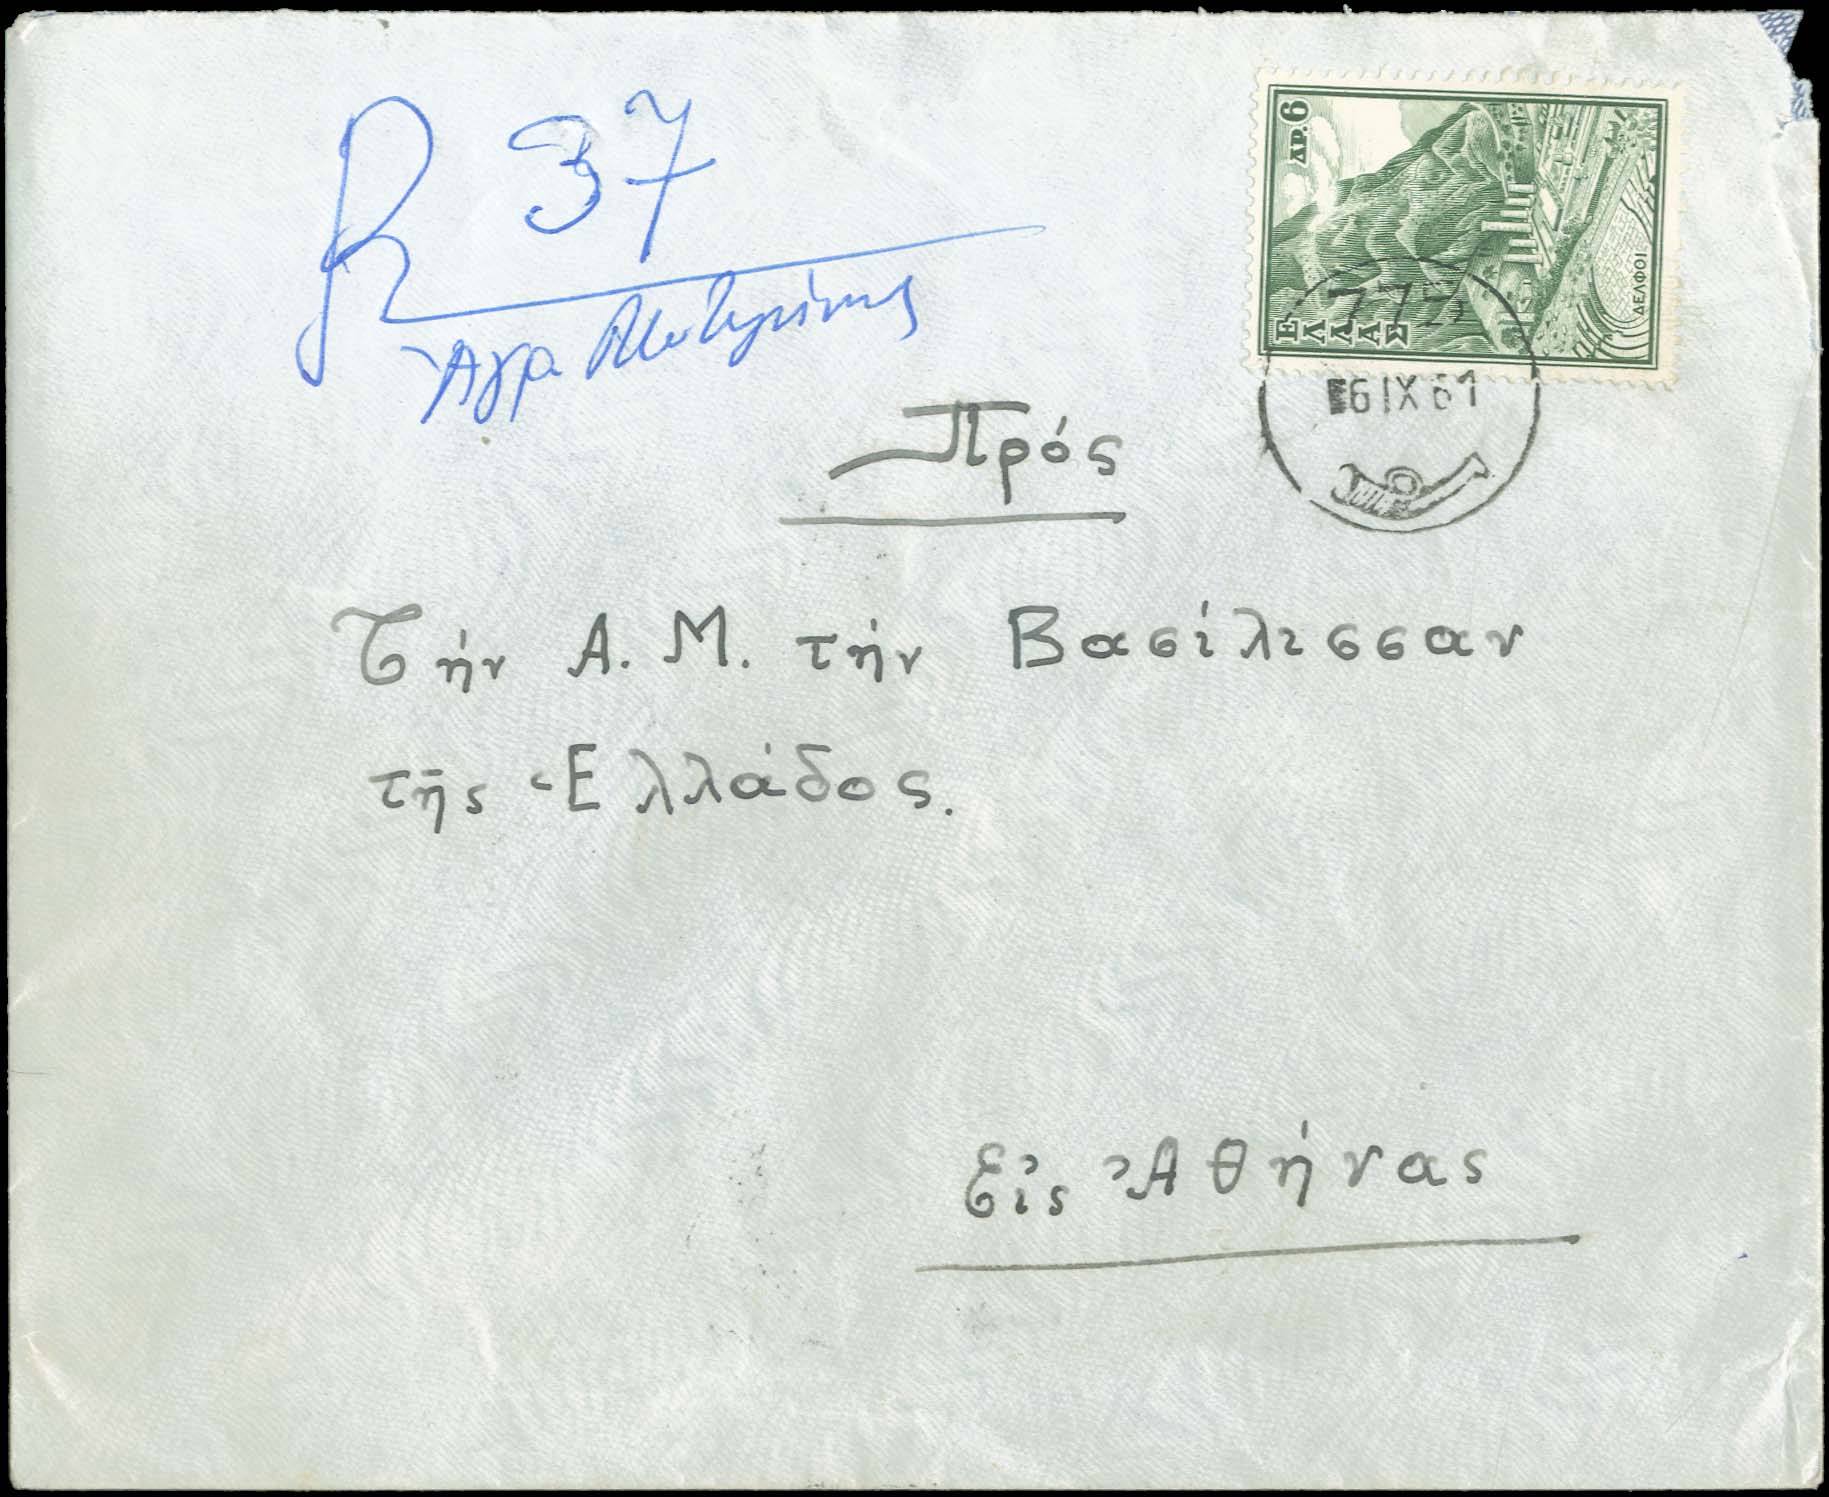 R 37
Ἀγρ.
ΔΡ. 6
ΕΛΛΑΣ
ΔΕΛΦΟΙ
775
6 IX 61
Πρός
Τήν Α. Μ. τήν Βασίλισσαν
τῆς Ἑλλάδος.
Εἰς Ἀθήνας